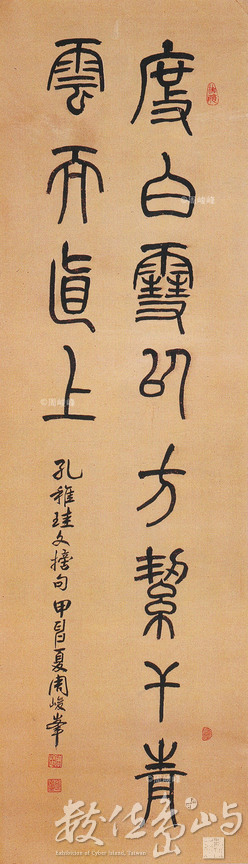 度白雪以方絜干青
雲而直上
孔稚珪文摘句 甲申夏周峻峯
©周峻峰
©周峻峰
數位島嶼
Exhibition of Cyber Island, Taiwan